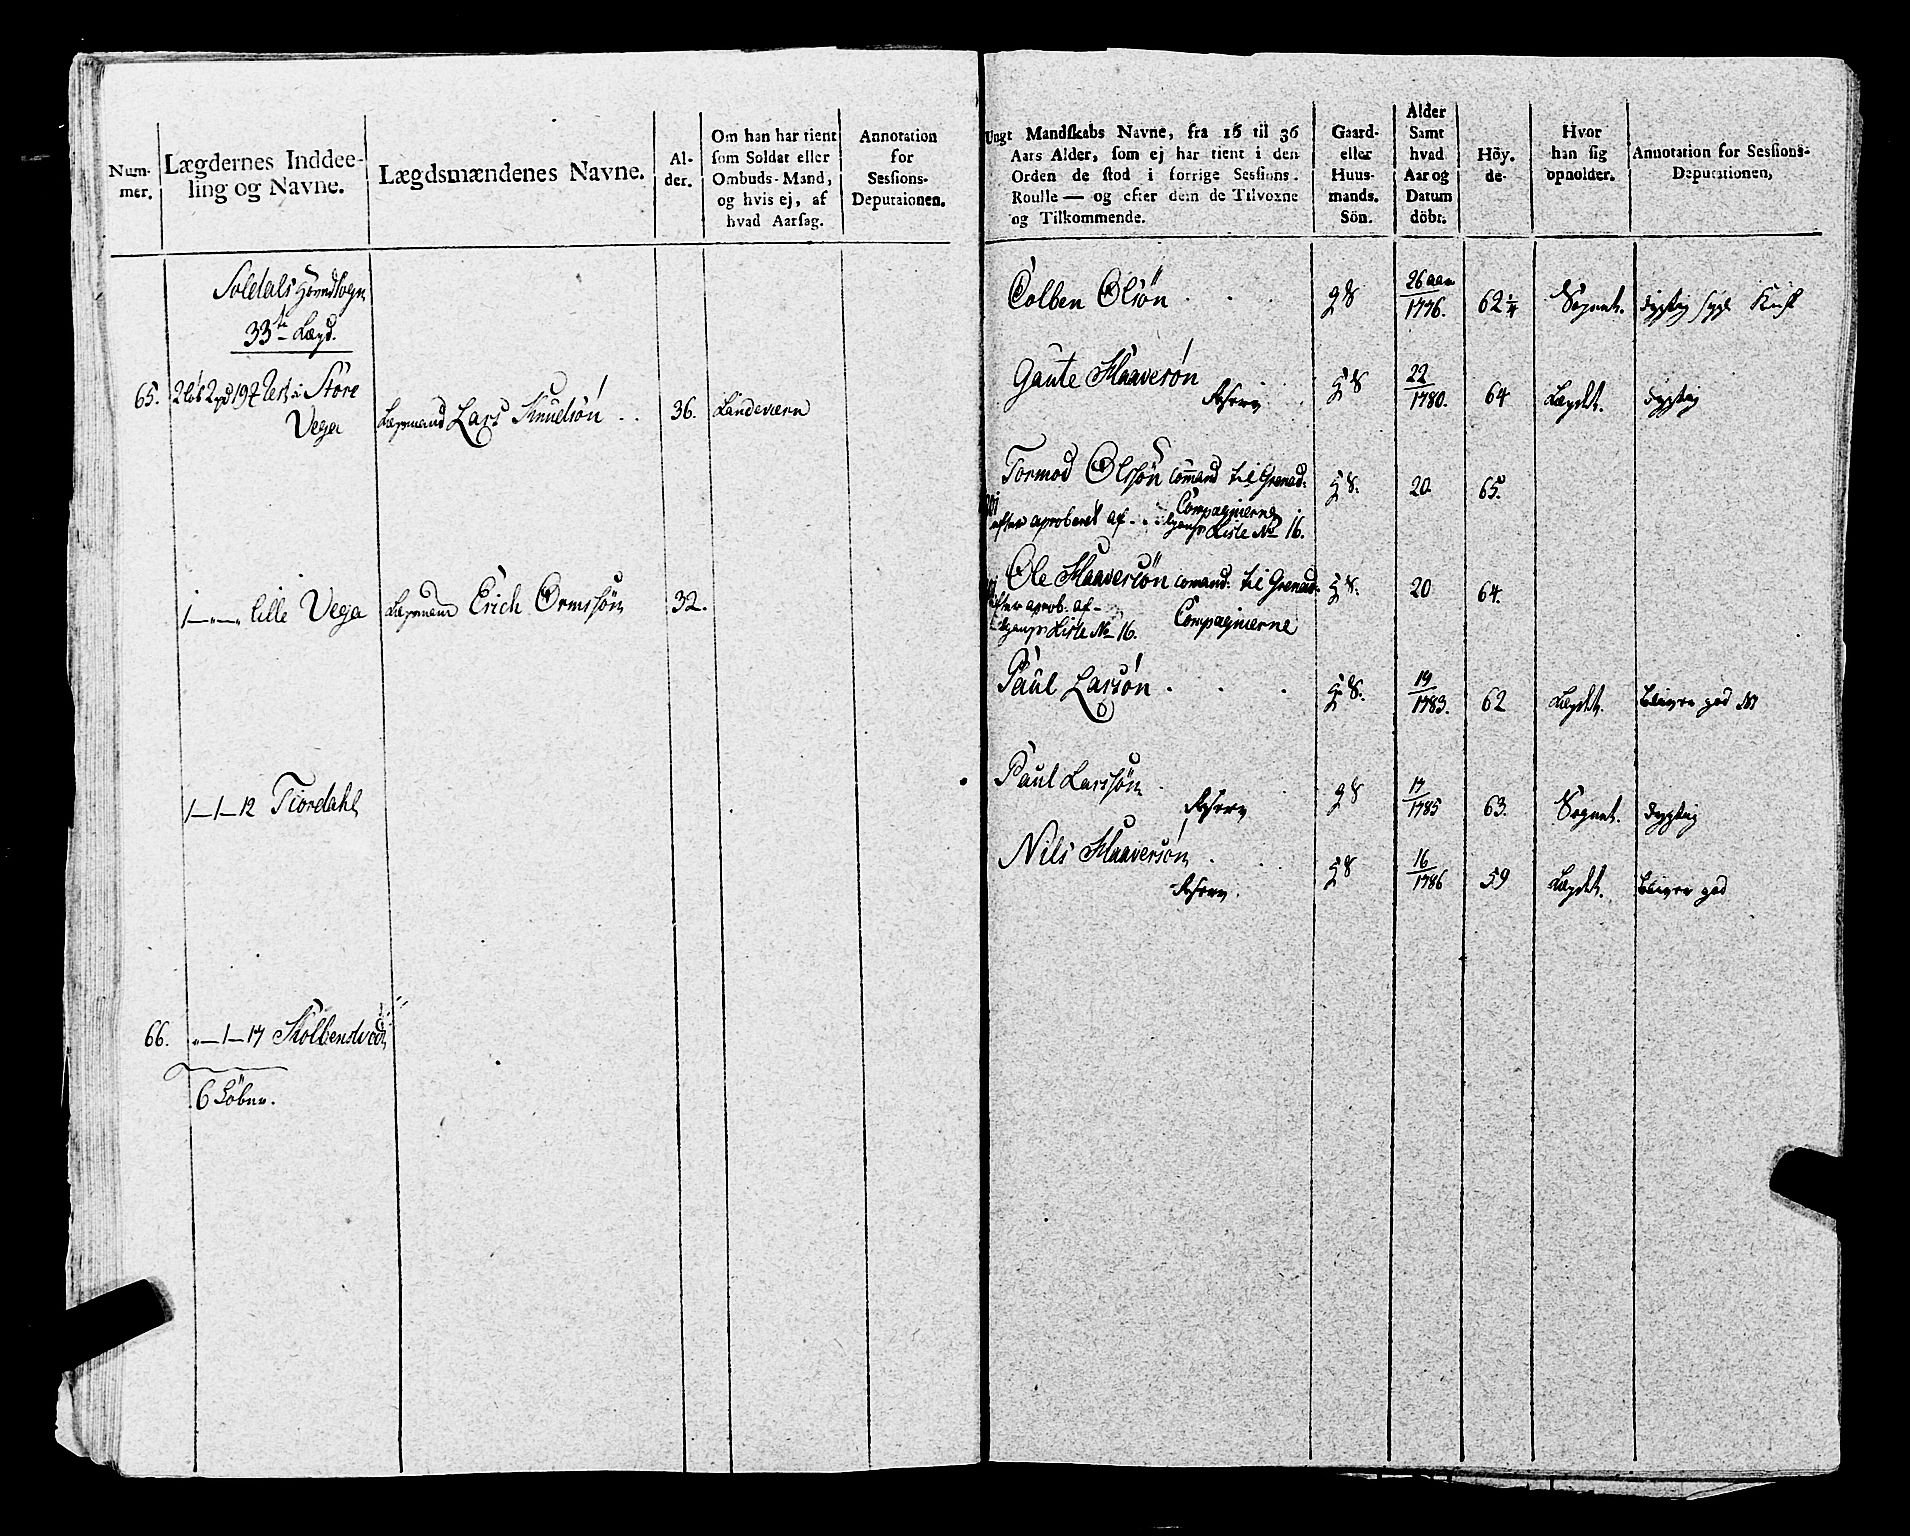 Num-
mer.
Lægdernes Inddee-
ling og Navne.
Lægdsmændenes Navne.
Al-
der.
Om han har tient
som Soldat eller
Ombuds-Mand,
og hvis ej, af
hvad Aarsag.
Annotation
for
Sessions-
Deputaionen.
Soledals Hovedsogn
33te Lægd.
65. 2 løb 2 pd 19½ Mk. i Store
Vega
Lægsmand Lars Knudsøn 36. Landeværn
1 — „ — „ Lille Vega Lægsmand Erich Ormssøn 32.
1 — 1 — 12 Fiordahl
66. „ — 1 — 17 Kolbensvedt
6 Løber.
Ungt Mandskabs Navne, fra 16 til 36
Aars Alder, som ej har tient i den
Orden de stod i forrige Sessions-
Roulle — og efter dem de Tilvoxne
og Tilkommende.
Gaard-
eller
Huus-
mands.
Sön.
Alder
Samt
hvad
Aar og
Datum
döbt.
Höy.
de.
Hvor
han sig
opholder.
Annotation for Sessions-
Deputationen,
Colben Olsön G S 26 aar 1776. 62¼ Sognet. dygtig
Gaute Haaversøn H S 22 1780. 64 Lægdet. dygtig
Reserv
Tormod Olssøn comand til Grenad: H S. 20 65.
Compagnierne
efter aproberet af
Liste No 16.
Ole Haaversön comand: til Grenad: H S. 20 64.
efter aprob. af
Liste No 16. Compagnierne
Paul Larsøn H S. 19 1783. 62 Lægdet. bliver god
Paul Larssøn G S 17 1785 63. Sognet. dygtig
Reserv
Nils Haaversøn H S 16 1786 59 Lægdet. bliver god
Reserv.